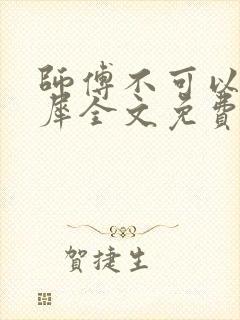 師傅不可以
犀全文免費
賀捷生